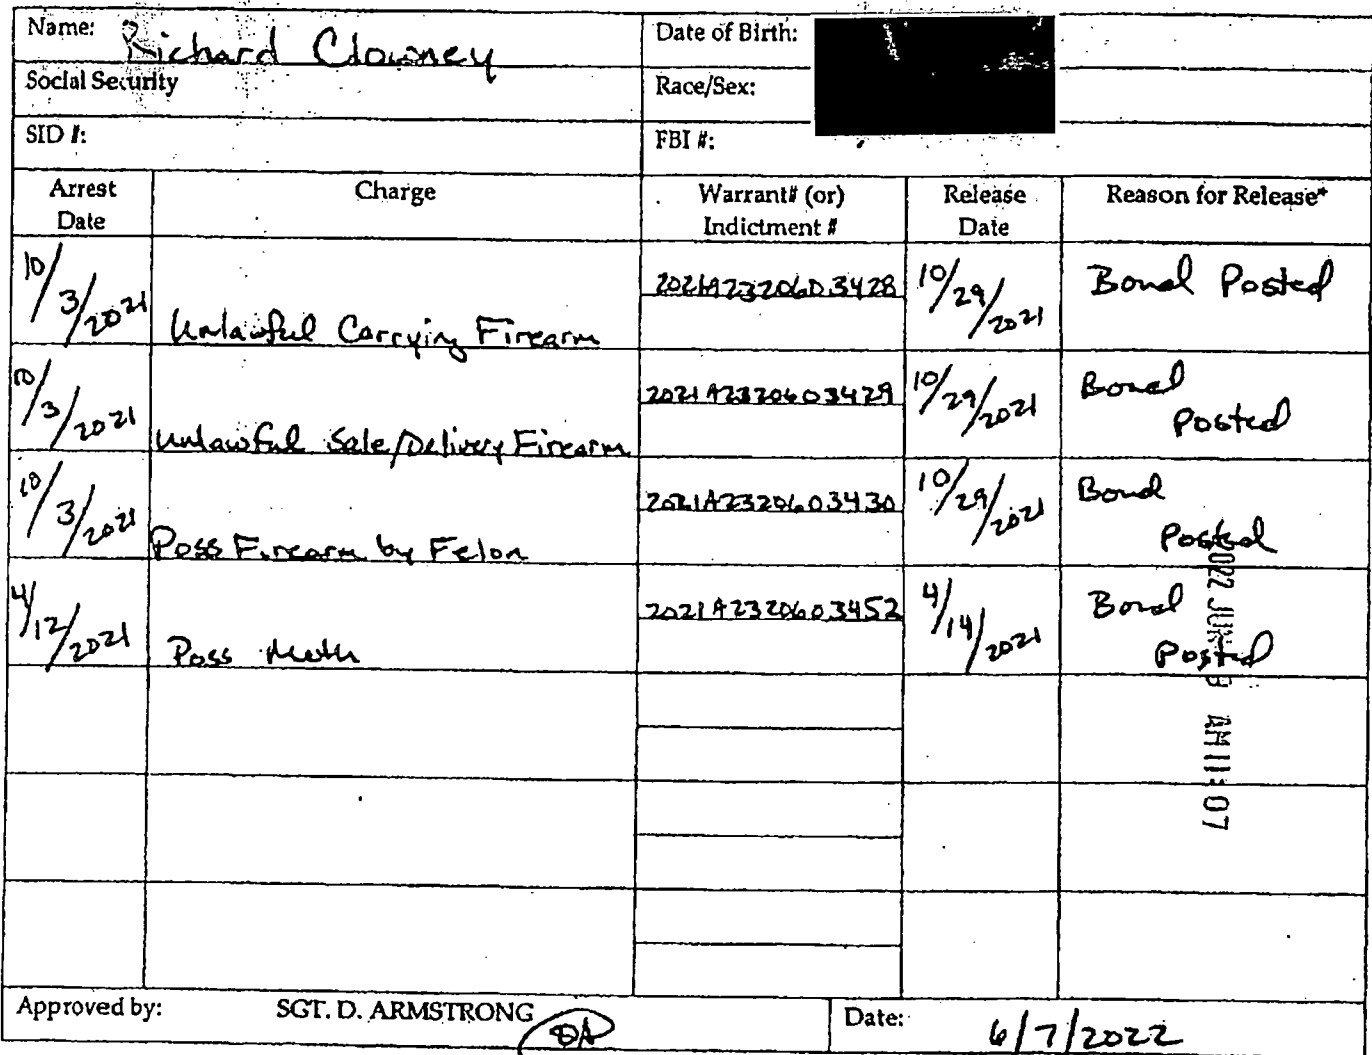 Name: Richard Clowney Date of Birth:
Social Security Race/Sex:
SID #: FBI #:
Arrest Date Charge Warrant# (or) Indictment # Release Date Reason for Release*
10/3/2021 Unlawful Carrying Firearm 2021A2320603428 10/29/2021 Bond Posted
10/3/2021 Unlawful Sale/Delivery Firearm 2021A2320603429 10/29/2021 Bond Posted
10/3/2021 Poss Firearm by Felon 2021A2320603430 10/29/2021 Bond Posted
4/12/2021 Poss Meth 2021A2320603452 4/14/2021 Bond Posted
2022 JUN AM 11:07
Approved by: SGT. D. ARMSTRONG DA Date: 6/7/2022